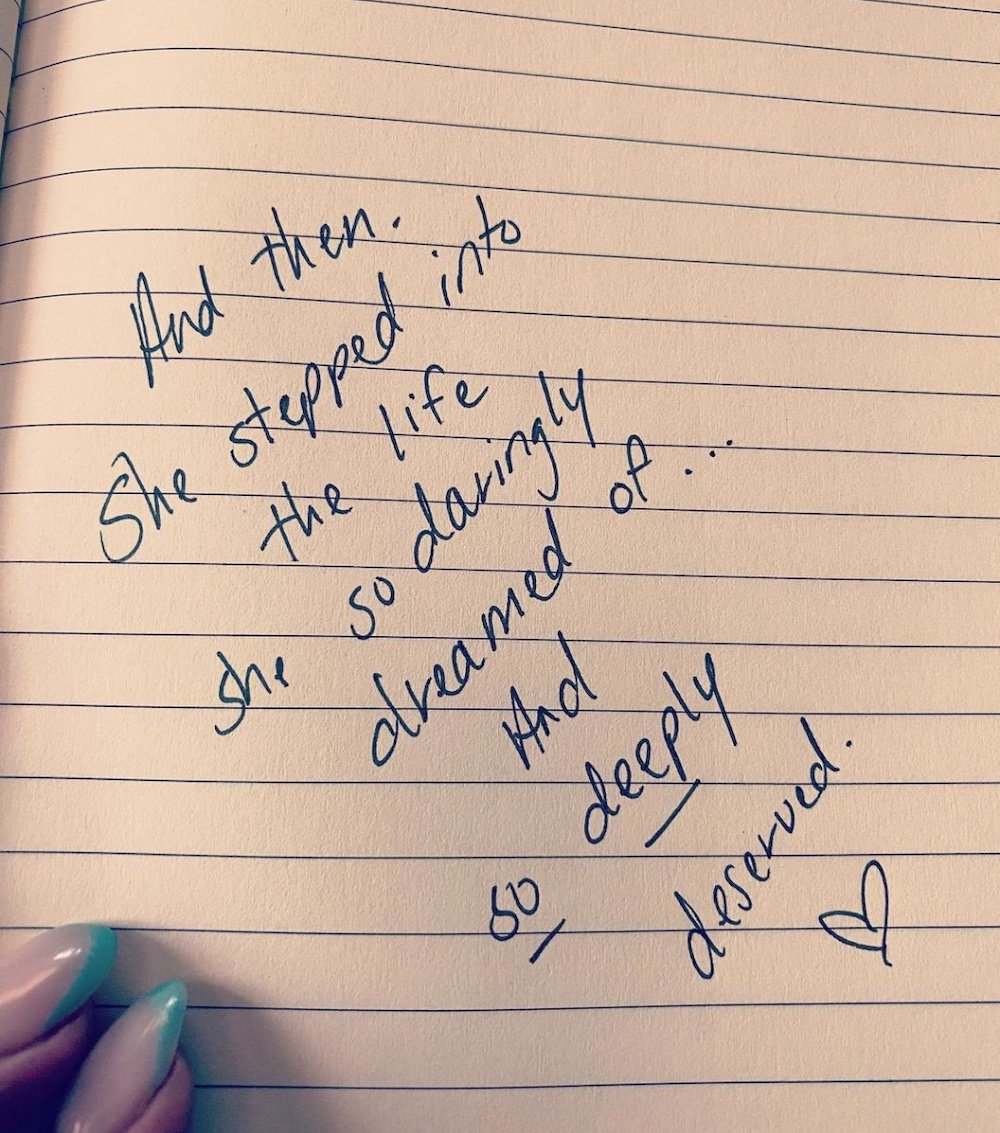 And then.
She stepped into
the life
she so daringly
dreamed of...
And
so deeply
deserved.